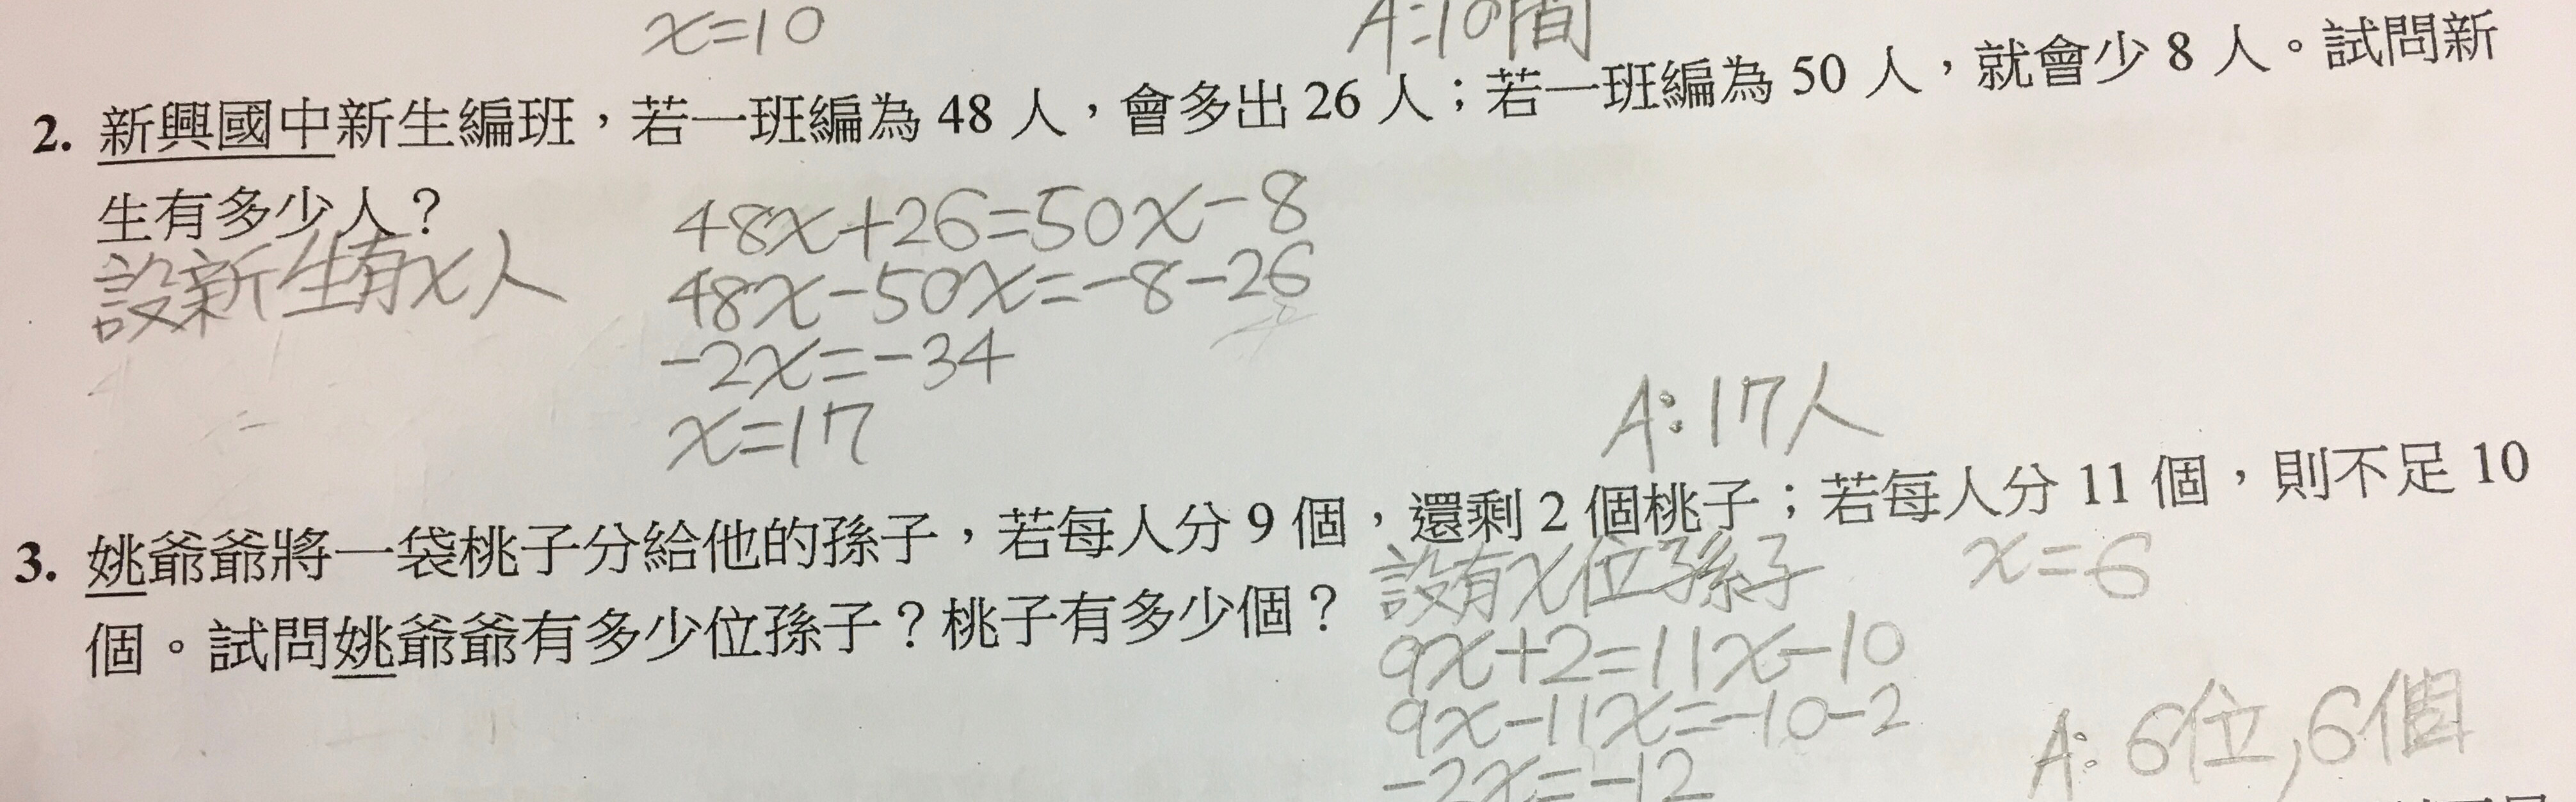 x=10
A:10間
2. 新興國中新生編班，若一班編為 48 人，會多出 26 人；若一班編為 50 人，就會少 8 人。試問新
生有多少人？
設新生有x人
48x+26=50x-8
48x-50x=-8-26
-2x=-34
x=17
A:17人
3. 姚爺爺將一袋桃子分給他的孫子，若每人分 9 個，還剩 2 個桃子；若每人分 11 個，則不足 10
個。試問姚爺爺有多少位孫子？桃子有多少個？
設有x位孫子
9x+2=11x-10
9x-11x=-10-2
-2x=-12
x=6
A:6位,6個